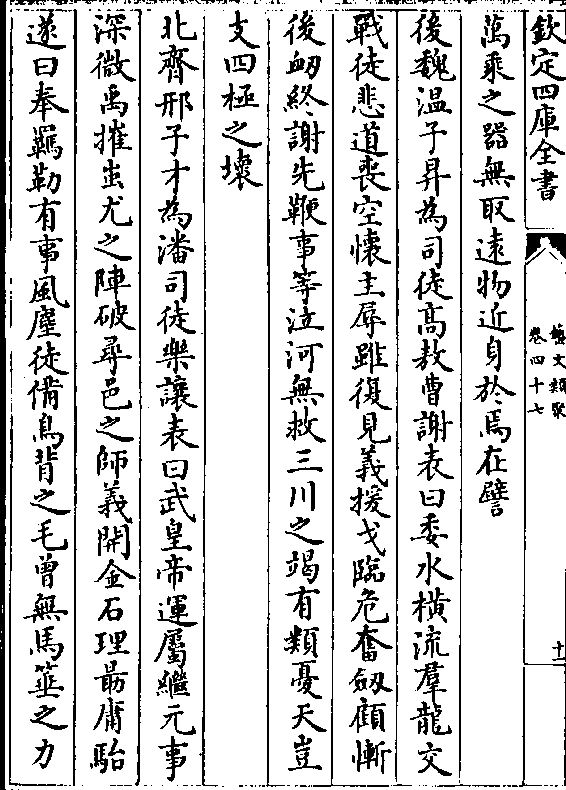 欽定四庫全書
藝文類聚
卷四十七
十一
萬乘之器無取遠物近身於焉在譬
後魏溫子昇為司徒高敖曹謝表曰委水橫流羣龍交
戰徒悲道喪空懷主辱雖復見義援戈臨危奮劒顧慚
後劒終謝先鞭事等泣河無救三川之竭有類憂天豈
支四極之壞
北齊邢子才為潘司徒樂讓表曰武皇帝運屬繼元事
深微禹摧蚩尤之陣破尋邑之師義開金石理昜庸駘
遂曰奉羈勒有事風塵徒備鳥背之毛曾無馬箠之力